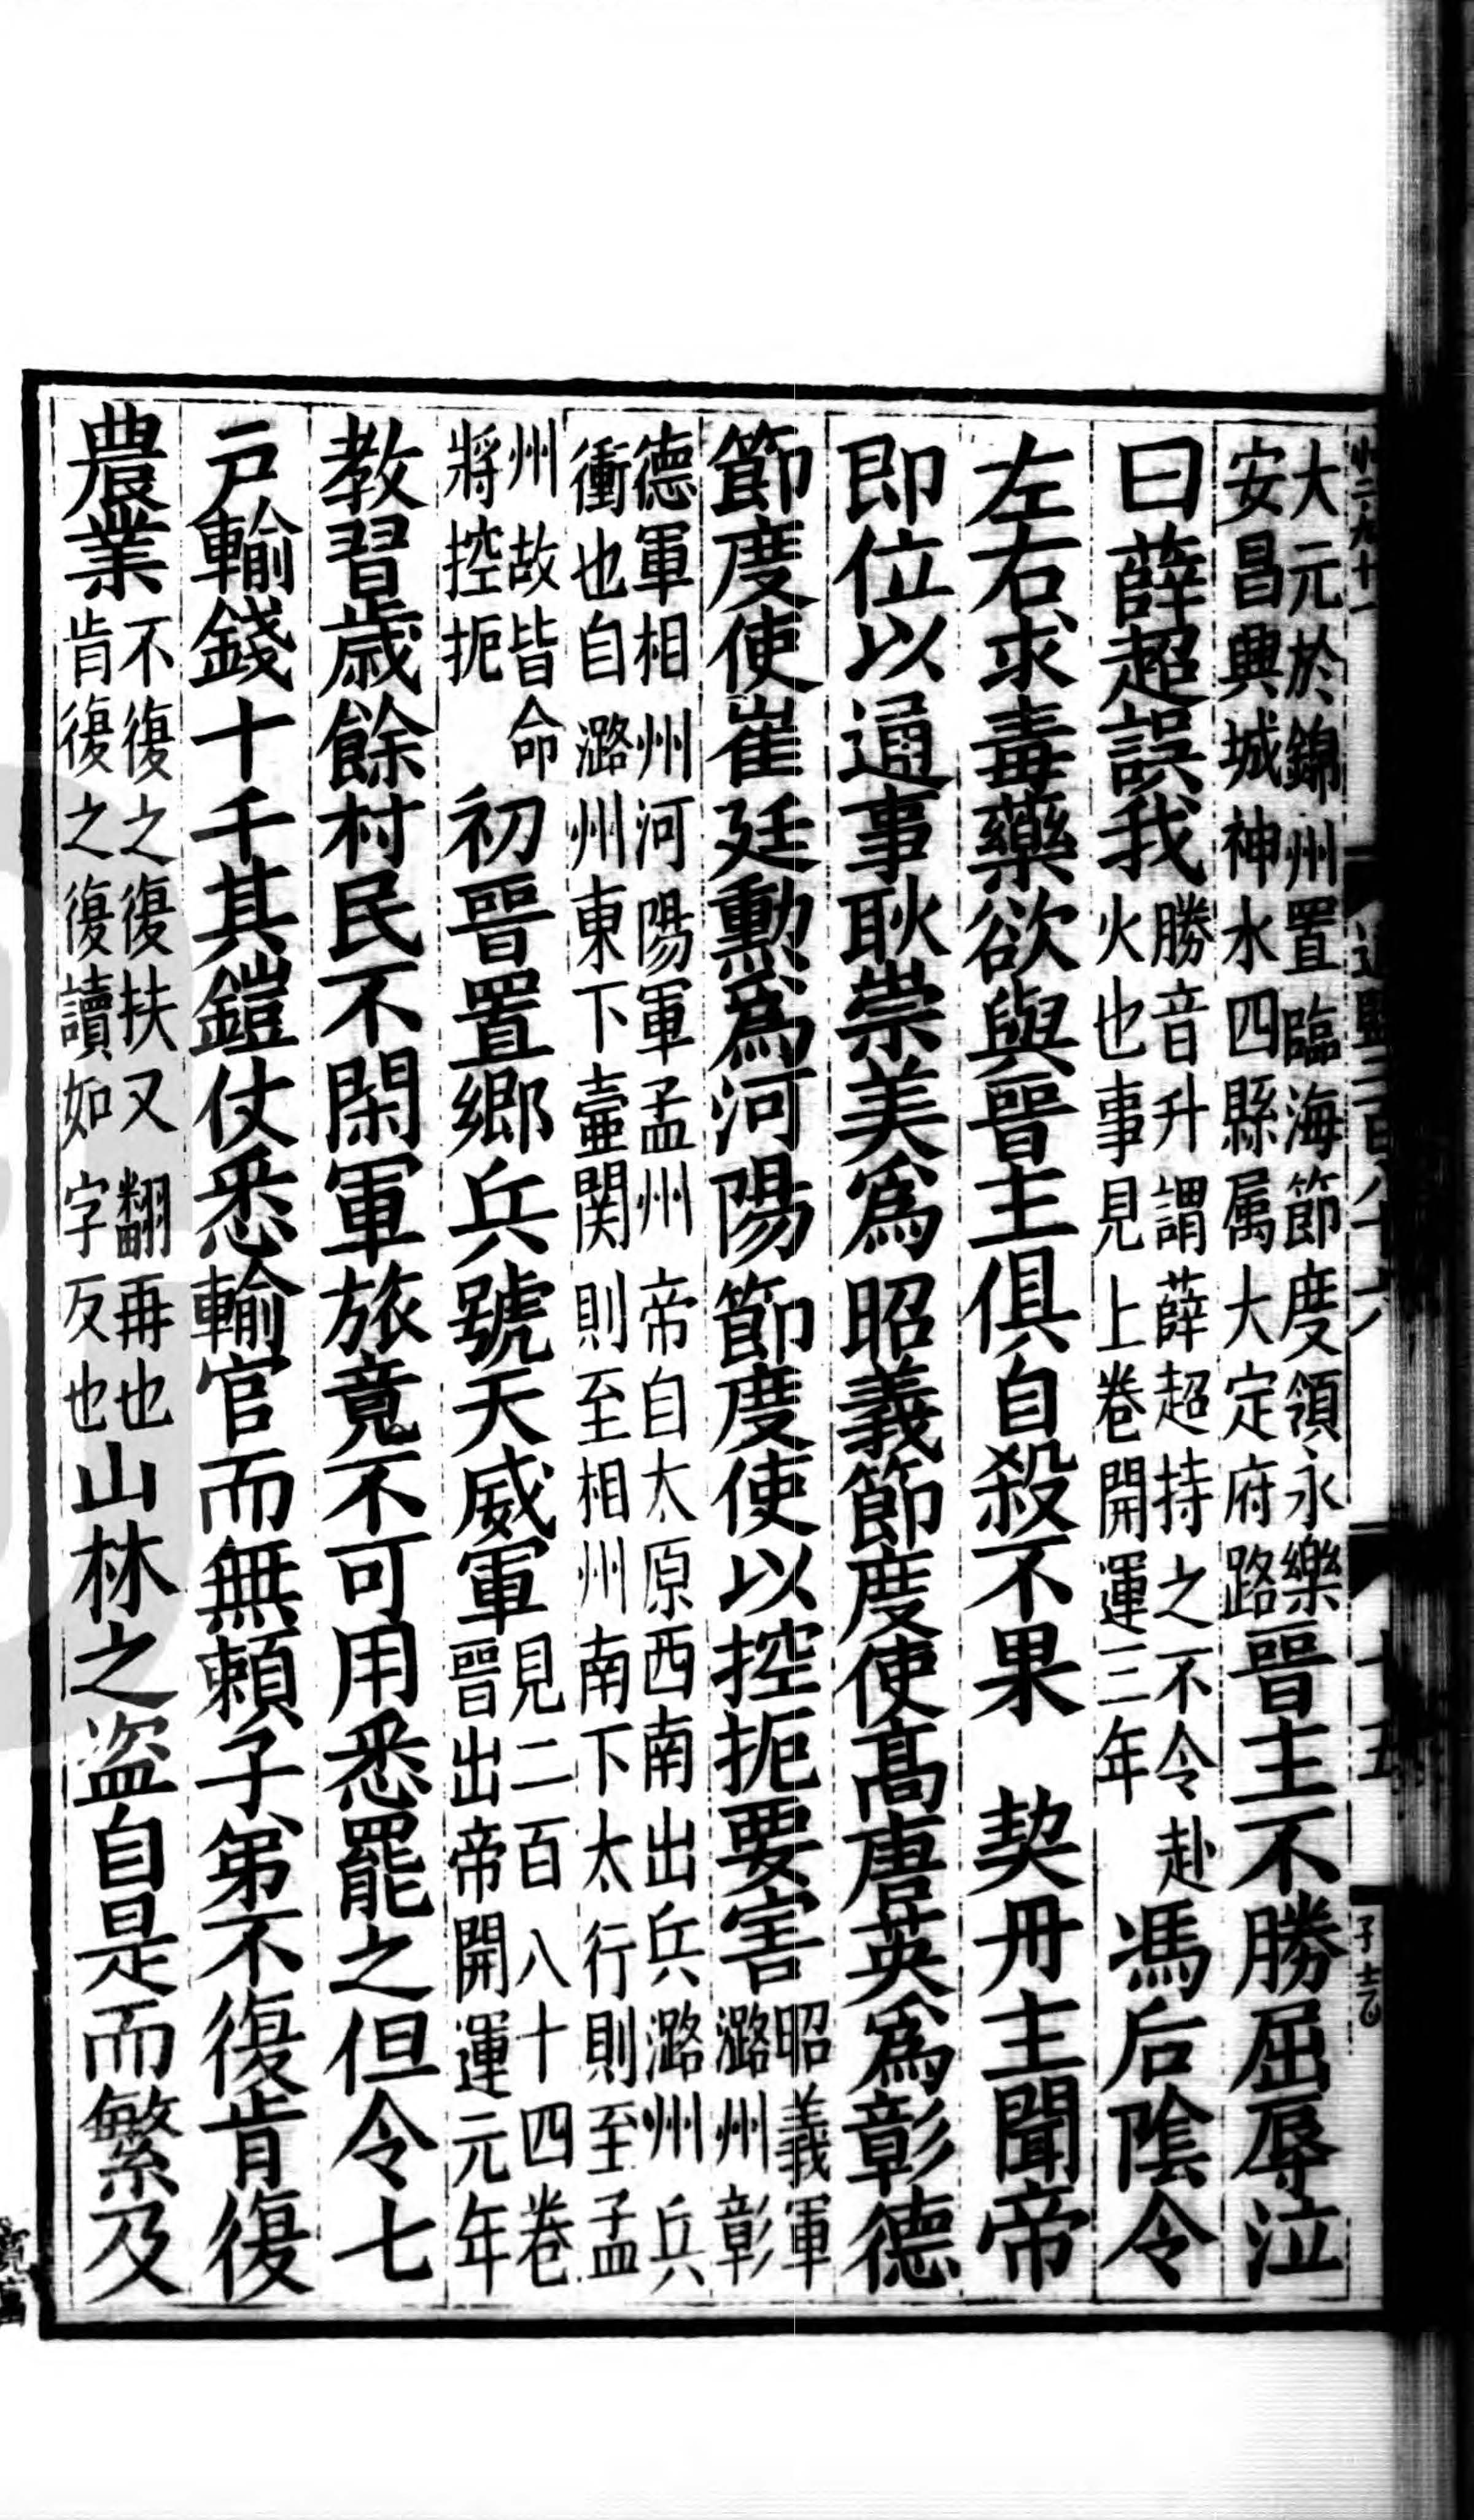 大元於錦州置臨海節度領永樂
安昌興城神水四縣属大定府路晉主不勝屈辱泣
曰薛超誤我勝音升謂薛超持之不令赴
火也事見上卷開運三年馮后隂令
左右求毒藥欲與晉主俱自殺不果　契丹主聞帝
即位以通事耿崇美爲昭義節度使髙唐英爲彰德
節度使崔廷勳爲河陽節度使以控扼要害昭義軍
潞州彰
德軍相州河陽軍孟州帝自太原西南出兵潞州兵
衝也自潞州東下壷関則至相州南下太行則至孟
州故皆命
將控扼初晉置鄉兵號天威軍見二百八十四卷
晉出帝開運元年
教習歳餘村民不閑軍旅竟不可用悉罷之但令七
戸輸錢十千其鎧仗悉輸官而無頼子弟不復肯復
農業不復之復扶又翻再也
肯復之復讀如字反也山林之盗自是而繁及
十五